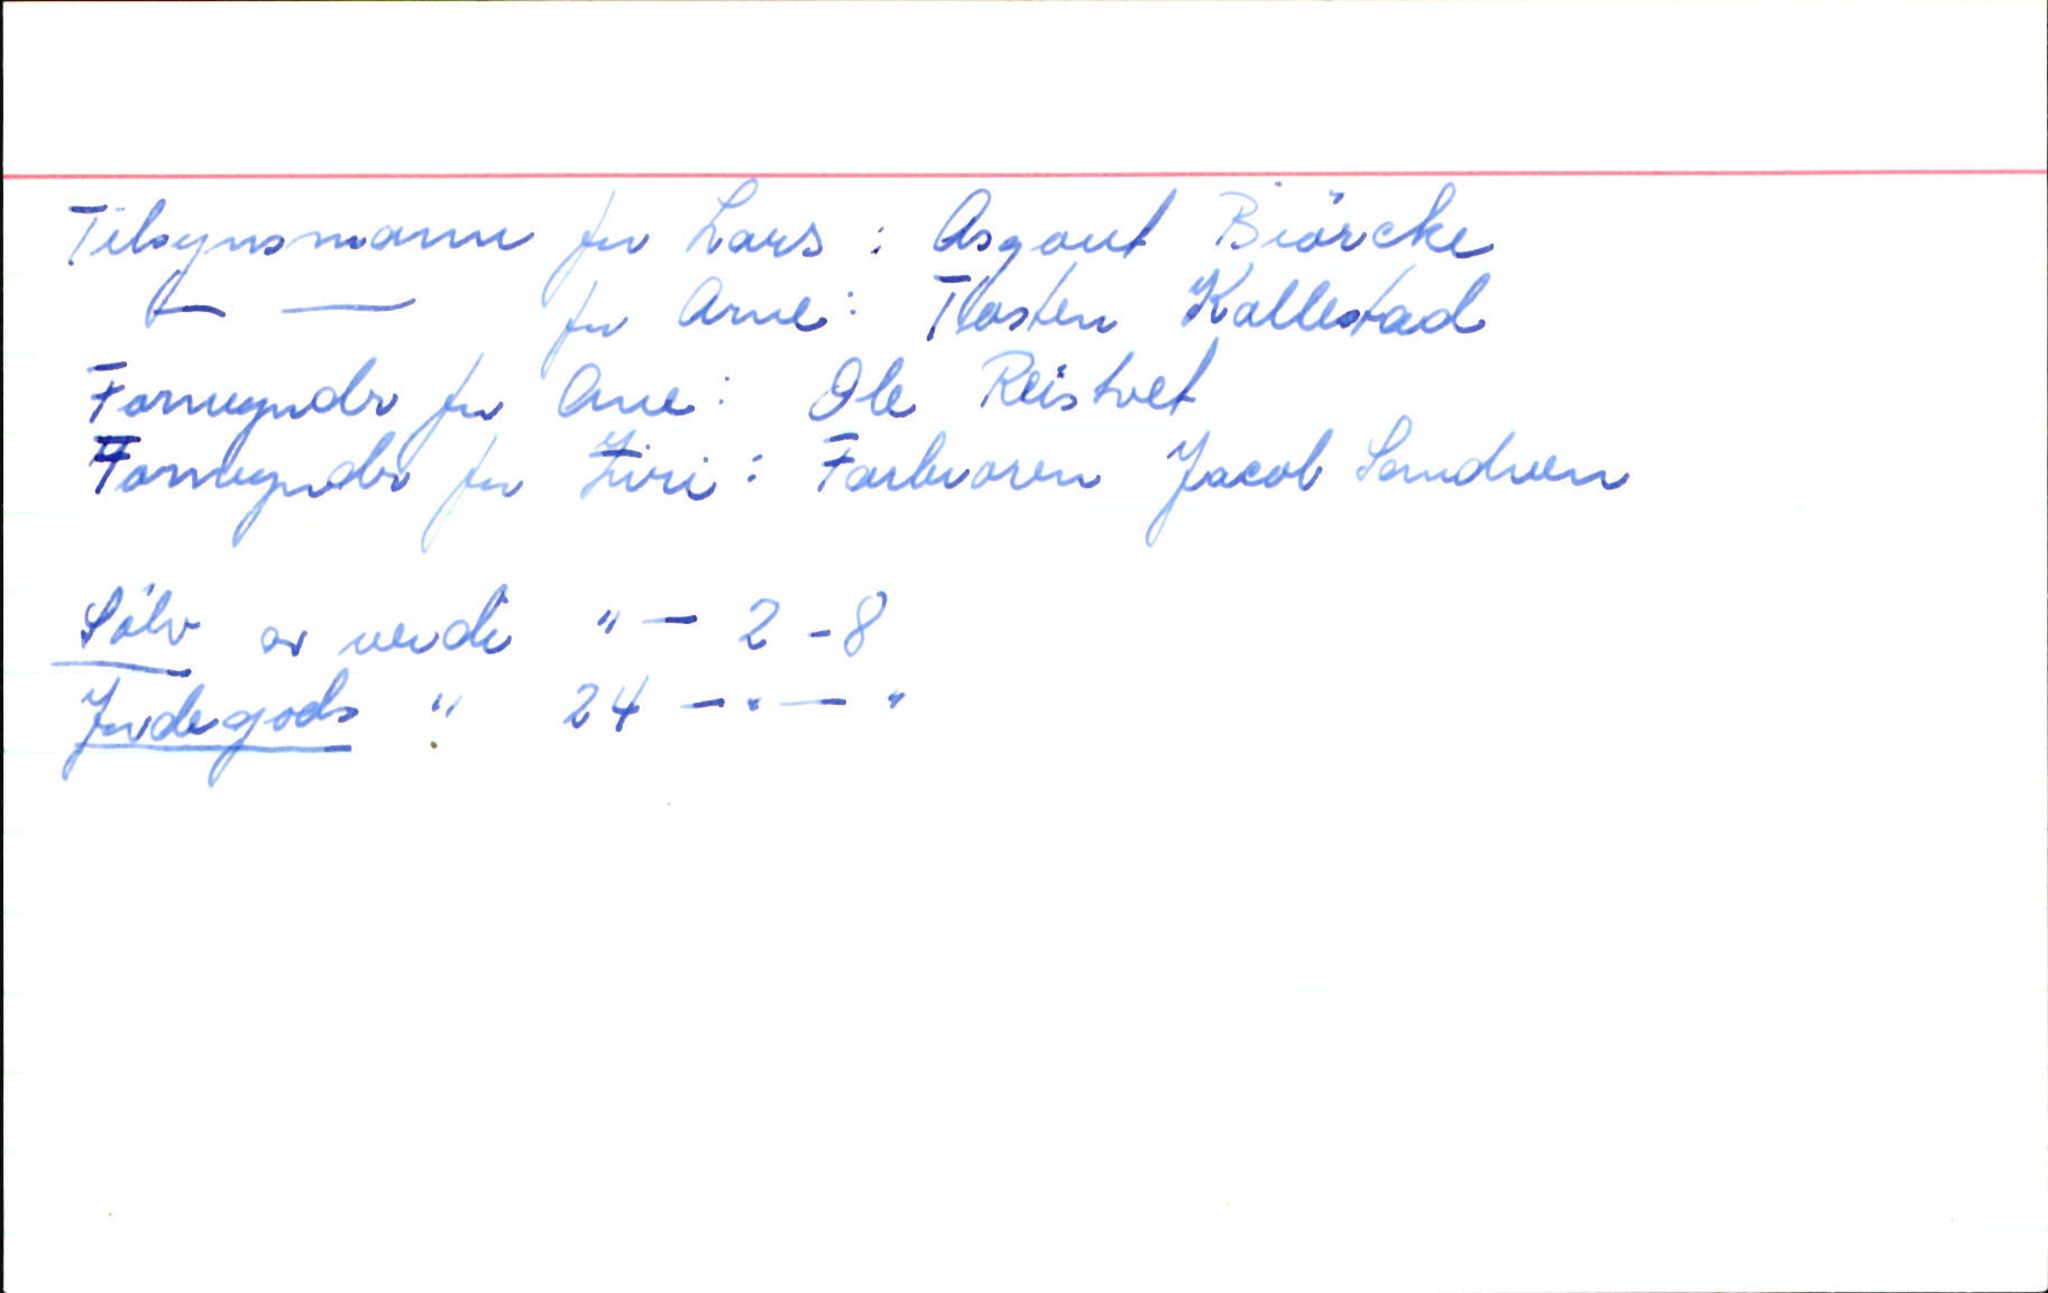 Tilsynsmann for Lars : Asgout Biörcke
— — for Arne : Tlosten Kallestad
Formynder for Ane : Ole Reistvet
Formynder for Ziri : Farbroren Jacob Sandven
Sølv er verdi " — 2 - 8
Jordegods " 24 — " — "